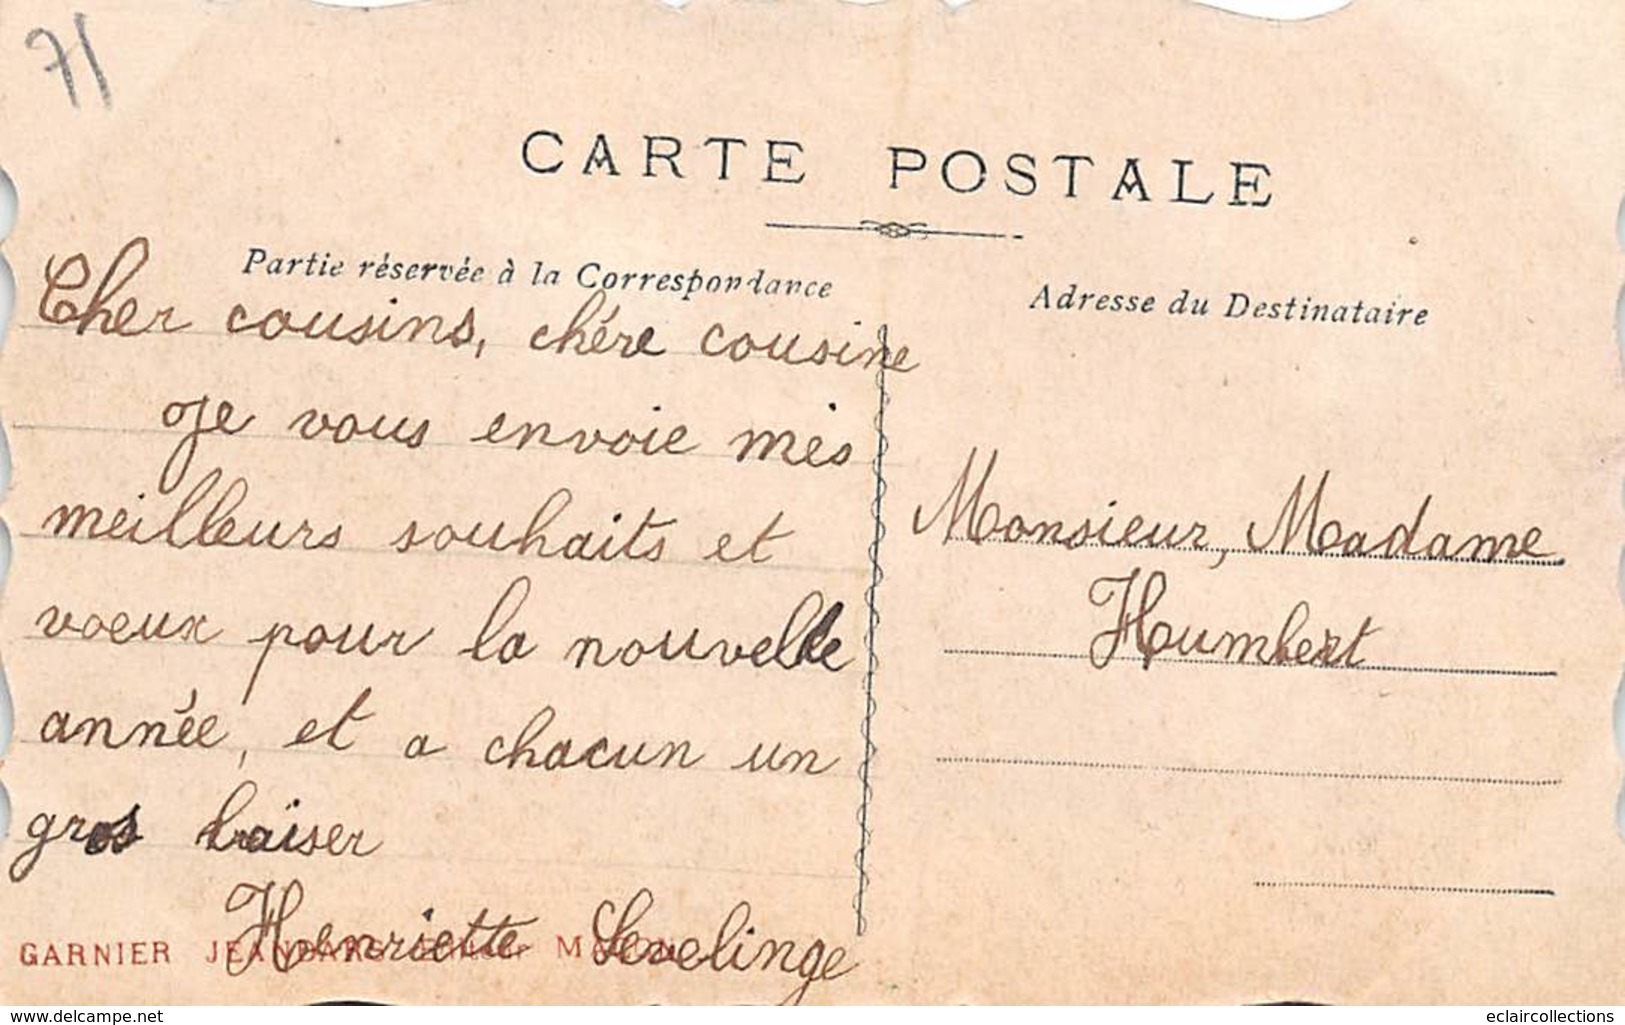 71
CARTE POSTALE
Partie réservée à la Correspondance
Adresse du Destinataire
Cher cousins, chére cousine
Je vous envoie mes
meilleurs souhaits et
voeux pour la nouvelle
année, et a chacun un
gros baiser
Henriette
Monsieur, Madame
Humbert
GARNIER
www.delcampe.net
eclaircollections